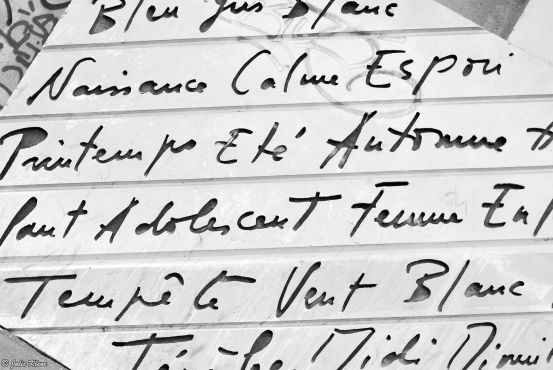 Bleu gris Blanc
Naissance Calme Espoir
Printemps Eté Automne H
fant Adolescent Femme En
Tempête Vent Blanc
Midi
© Julie